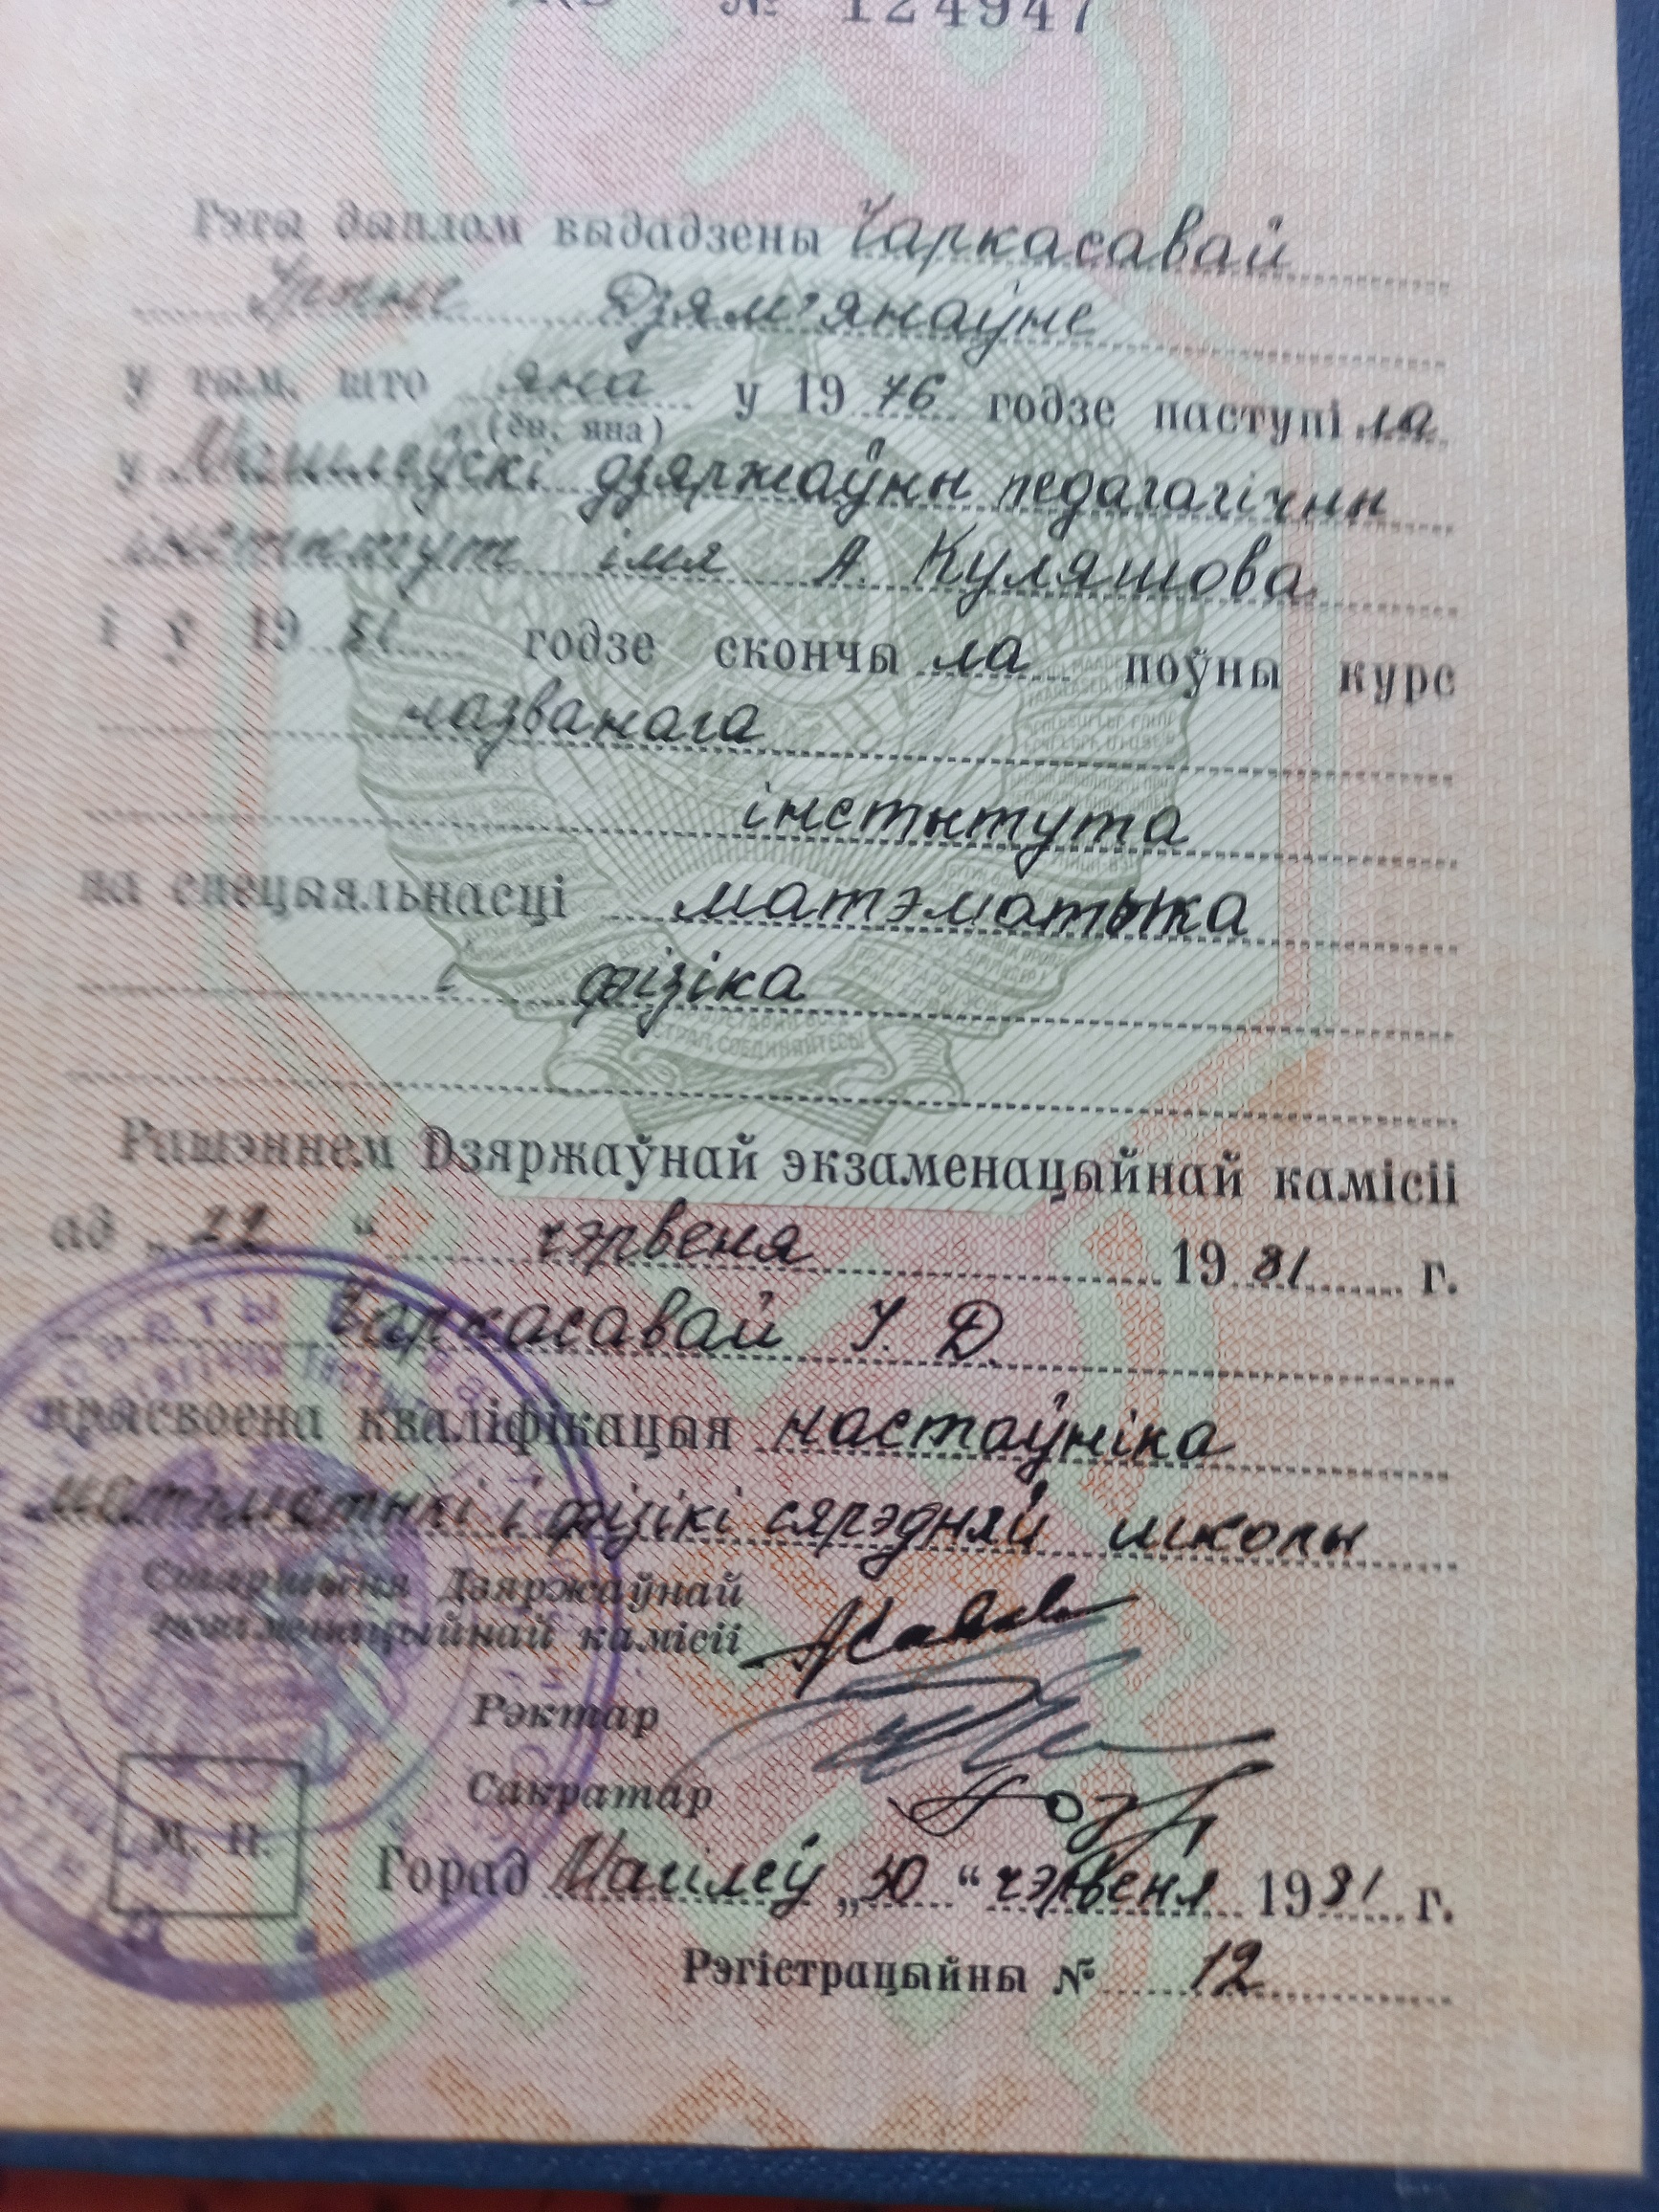 № 124947
Гэты дыплом выдадзены Чаркасавай
Ірыне Дзям'янаўне
у тым, што яна у 1976 годзе паступіла
(ён, яна)
у Магілеўскі дзяржаўны педагагічны
інстытут імя А. Куляшова
і у 1981 годзе скончыла поўны курс
названага
інстытута
па спецыяльнасці матэматыка
і фізіка
Рашэннем Дзяржаўнай экзаменацыйнай камісіі
ад „22“ чэрвеня 1981 г.
Чаркасавай І. Д.
прысвоена кваліфікацыя настаўніка
матэматыкі і фізікі сярэдняй школы
Старшыня Дзяржаўнай
экзаменацыйнай камісіі
Рэктар
Сакратар
М. П.
Горад Магілеў „30“ чэрвеня 1981 г.
Рэгістрацыйны № 12